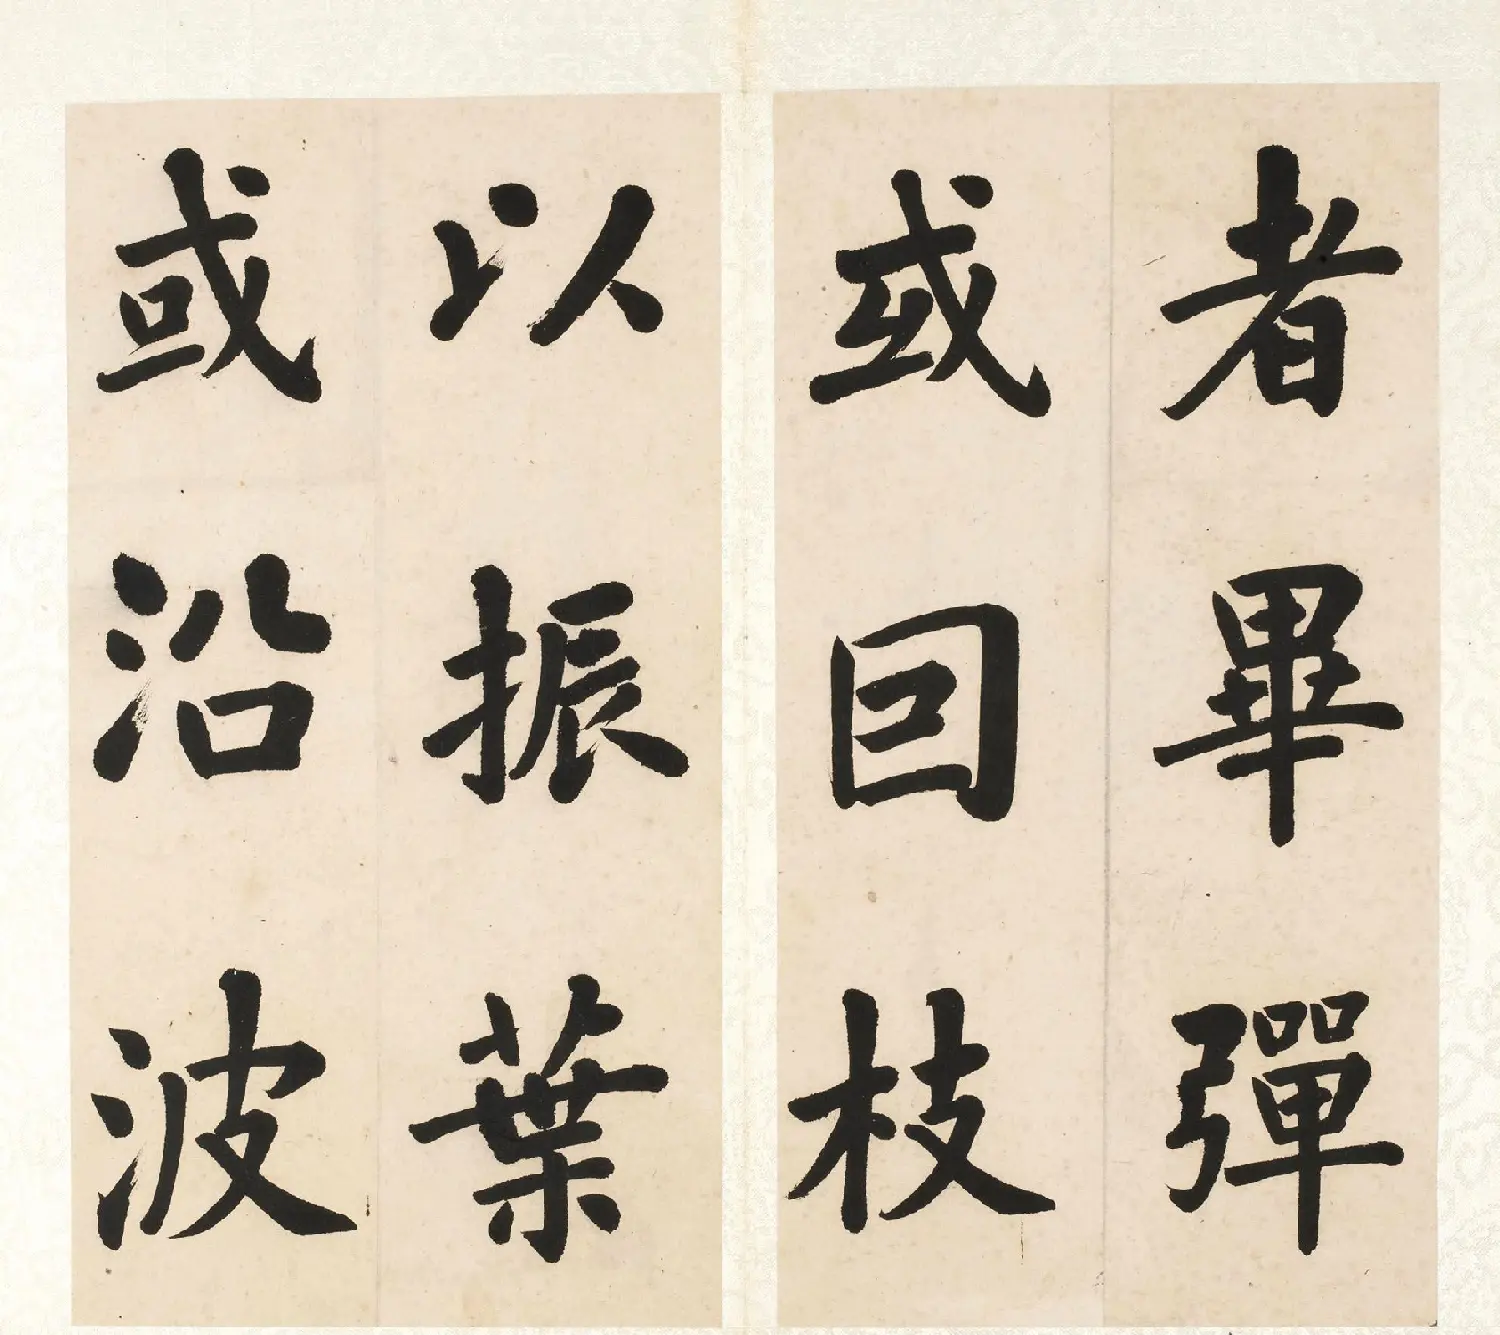 者畢彈
或因枝
以振葉
或沿波